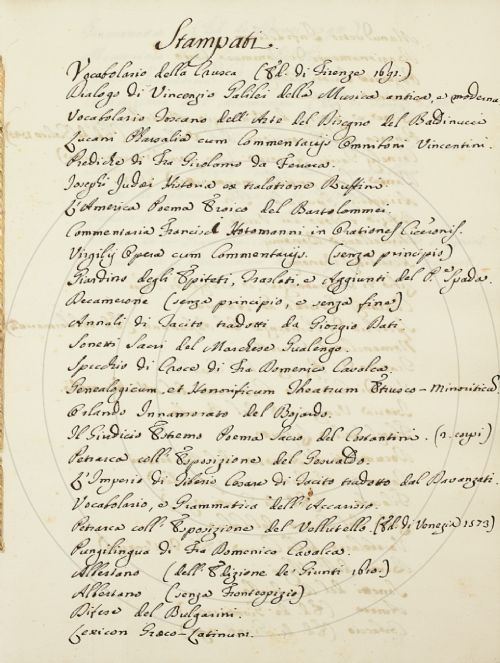 Stampati.
Vocabolario della Crusca (Ed. di Firenze 1691.)
Dialogo di Vincenzio Galilei della Musica antica, e moderna
Vocabolario Toscano dell'Arte del Disegno del Baldinucci
Lucani Pharsalia cum Commentarijs Omniboni Vincentini.
Prediche di Fra Girolamo da Ferrara.
Josephi Judæi Historia ex tralatione Ruffini
L'America Poema Eroico del Bartolommei.
Commentaria Francisci Hotomanni in Orationes Ciceronis.
Virgilij Opera cum Commentarijs. (senza principio)
Giardino degli Epiteti, Traslati, e Aggiunti del P.e Spada.
Decamerone (senza principio, e senza fine)
Annali di Tacito tradotti da Giorgio Dati
Sonetti Sacri del Marchese Gualengo.
Specchio di Croce di Fra Domenico Cavalca.
Genealogicum, et Honorificum Theatrum Etrusco-Minoriticũ
Orlando Innamorato del Bojardo.
Il Giudicio Estremo Poema Sacro del Costantini. (2. copi)
Petrarca coll'Esposizione del Gesualdo.
L'Imperio di Tiberio Cesare di Tacito tradotto dal Davanzati.
Vocabolario, e Grammatica dell'Accarisio.
Petrarca coll'Esposizione del Vellutello. (Ed. di Venezia 1573)
Pungilingua di Fra Domenico Cavalca.
Albertano (dell'Edizione de' Giunti 1610.)
Albertano (senza Frontespizio)
Difese del Bulgarini.
Lexicon Græco-Latinum.